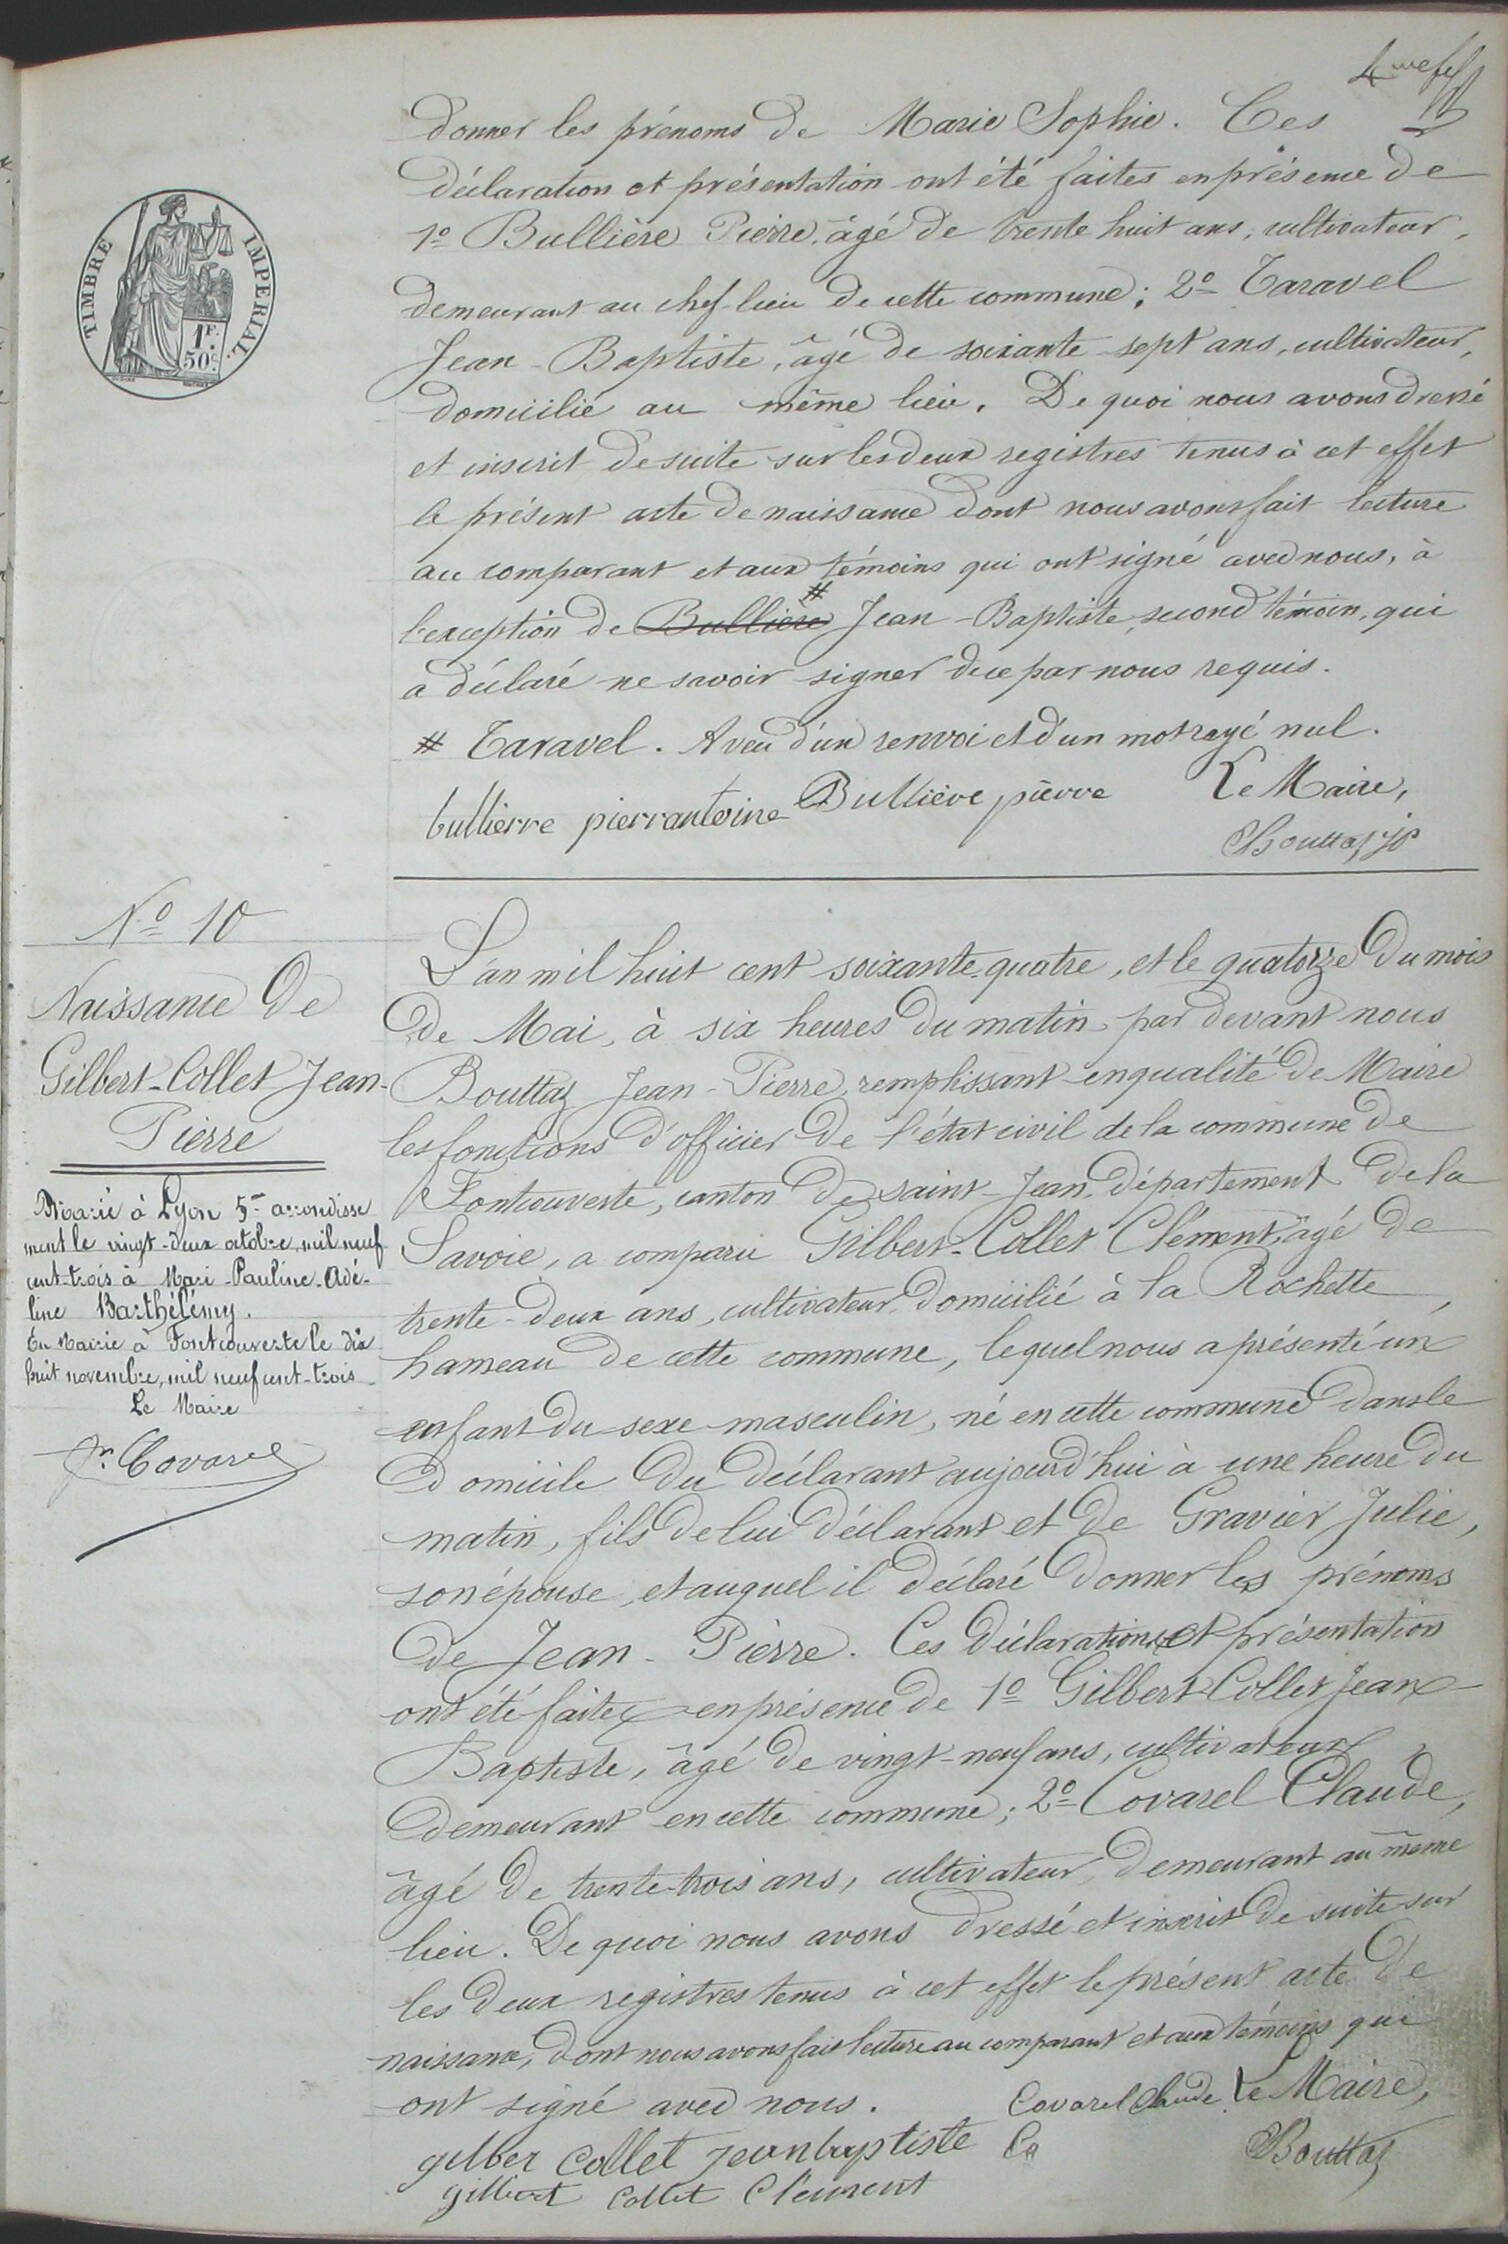 4me f
donner les prénoms de Marie Sophie. Ces
déclaration et présentation ont été faites en présence de
1º Bullière Pierre, âgé de trente huit ans, cultivateur,
demeurant au chef-lieu de cette commune; 2º Taravel
Jean-Baptiste, âgé de soixante-sept ans, cultivateur,
domicilié au même lieu. De quoi nous avons dressé
et inscrit de suite sur les deux registres tenus à cet effet
le présent acte de naissance dont nous avons fait lecture
au comparant et aux témoins qui ont signé avec nous, à
l'exception de Bullière # Jean-Baptiste, second témoin, qui
a déclaré ne savoir signer de ce par nous requis.
# Taravel. Aveu d'un renvoi et d'un mot rayé nul.
bullierre pierrantoine Bullière pièrre Le Maire,
Bouttaz jp
TIMBRE IMPERIAL
1F.
50c.
Nº 10
Naissance de
Gilbert-Collet Jean-
Pierre
Marié à Lyon 5me arrondisse
ment le vingt-deux octobre, mil neuf
cent-trois à Mari-Pauline-Adé-
line Barthélémy.
En Mairie à Fontcouverte le dix
huit novembre, mil neuf cent-trois
Le Maire
Covarel
L'an mil huit cent soixante-quatre, et le quatorze du mois
de Mai, à six heures du matin, par devant nous
Bouttaz Jean-Pierre, remplissant en qualité de Maire
les fonctions d'officier de l'état civil de la commune de
Fontcouverte, canton de saint-Jean, département de la
Savoie, a comparu Gilbert-Collet Clément, âgé de
trente-deux ans, cultivateur, domicilié à la Rochette,
hameau de cette commune, lequel nous a présenté un
enfant du sexe masculin, né en cette commune dans le
domicile du déclarant aujourd'hui à une heure du
matin, fils de lui déclarant et de Gravier Julie,
son épouse, et auquel il déclaré donner les prénoms
de Jean-Pierre. Ces déclaration et présentation
ont été faites en présence de 1º Gilbert-Collet Jean-
Baptiste, âgé de vingt-neuf ans, cultivateur,
demeurant en cette commune; 2º Covarel Claude,
âgé de trente-trois ans, cultivateur, demeurant au même
lieu. De quoi nous avons dressé et inscrit de suite sur
les deux registres tenus à cet effet le présent acte de
naissance, dont nous avons fait lecture au comparant et aux témoins qui
ont signé avec nous. Covarel Claude Le Maire,
gilber collet jeanbaptiste Co Bouttaz
gilbert collet Clément